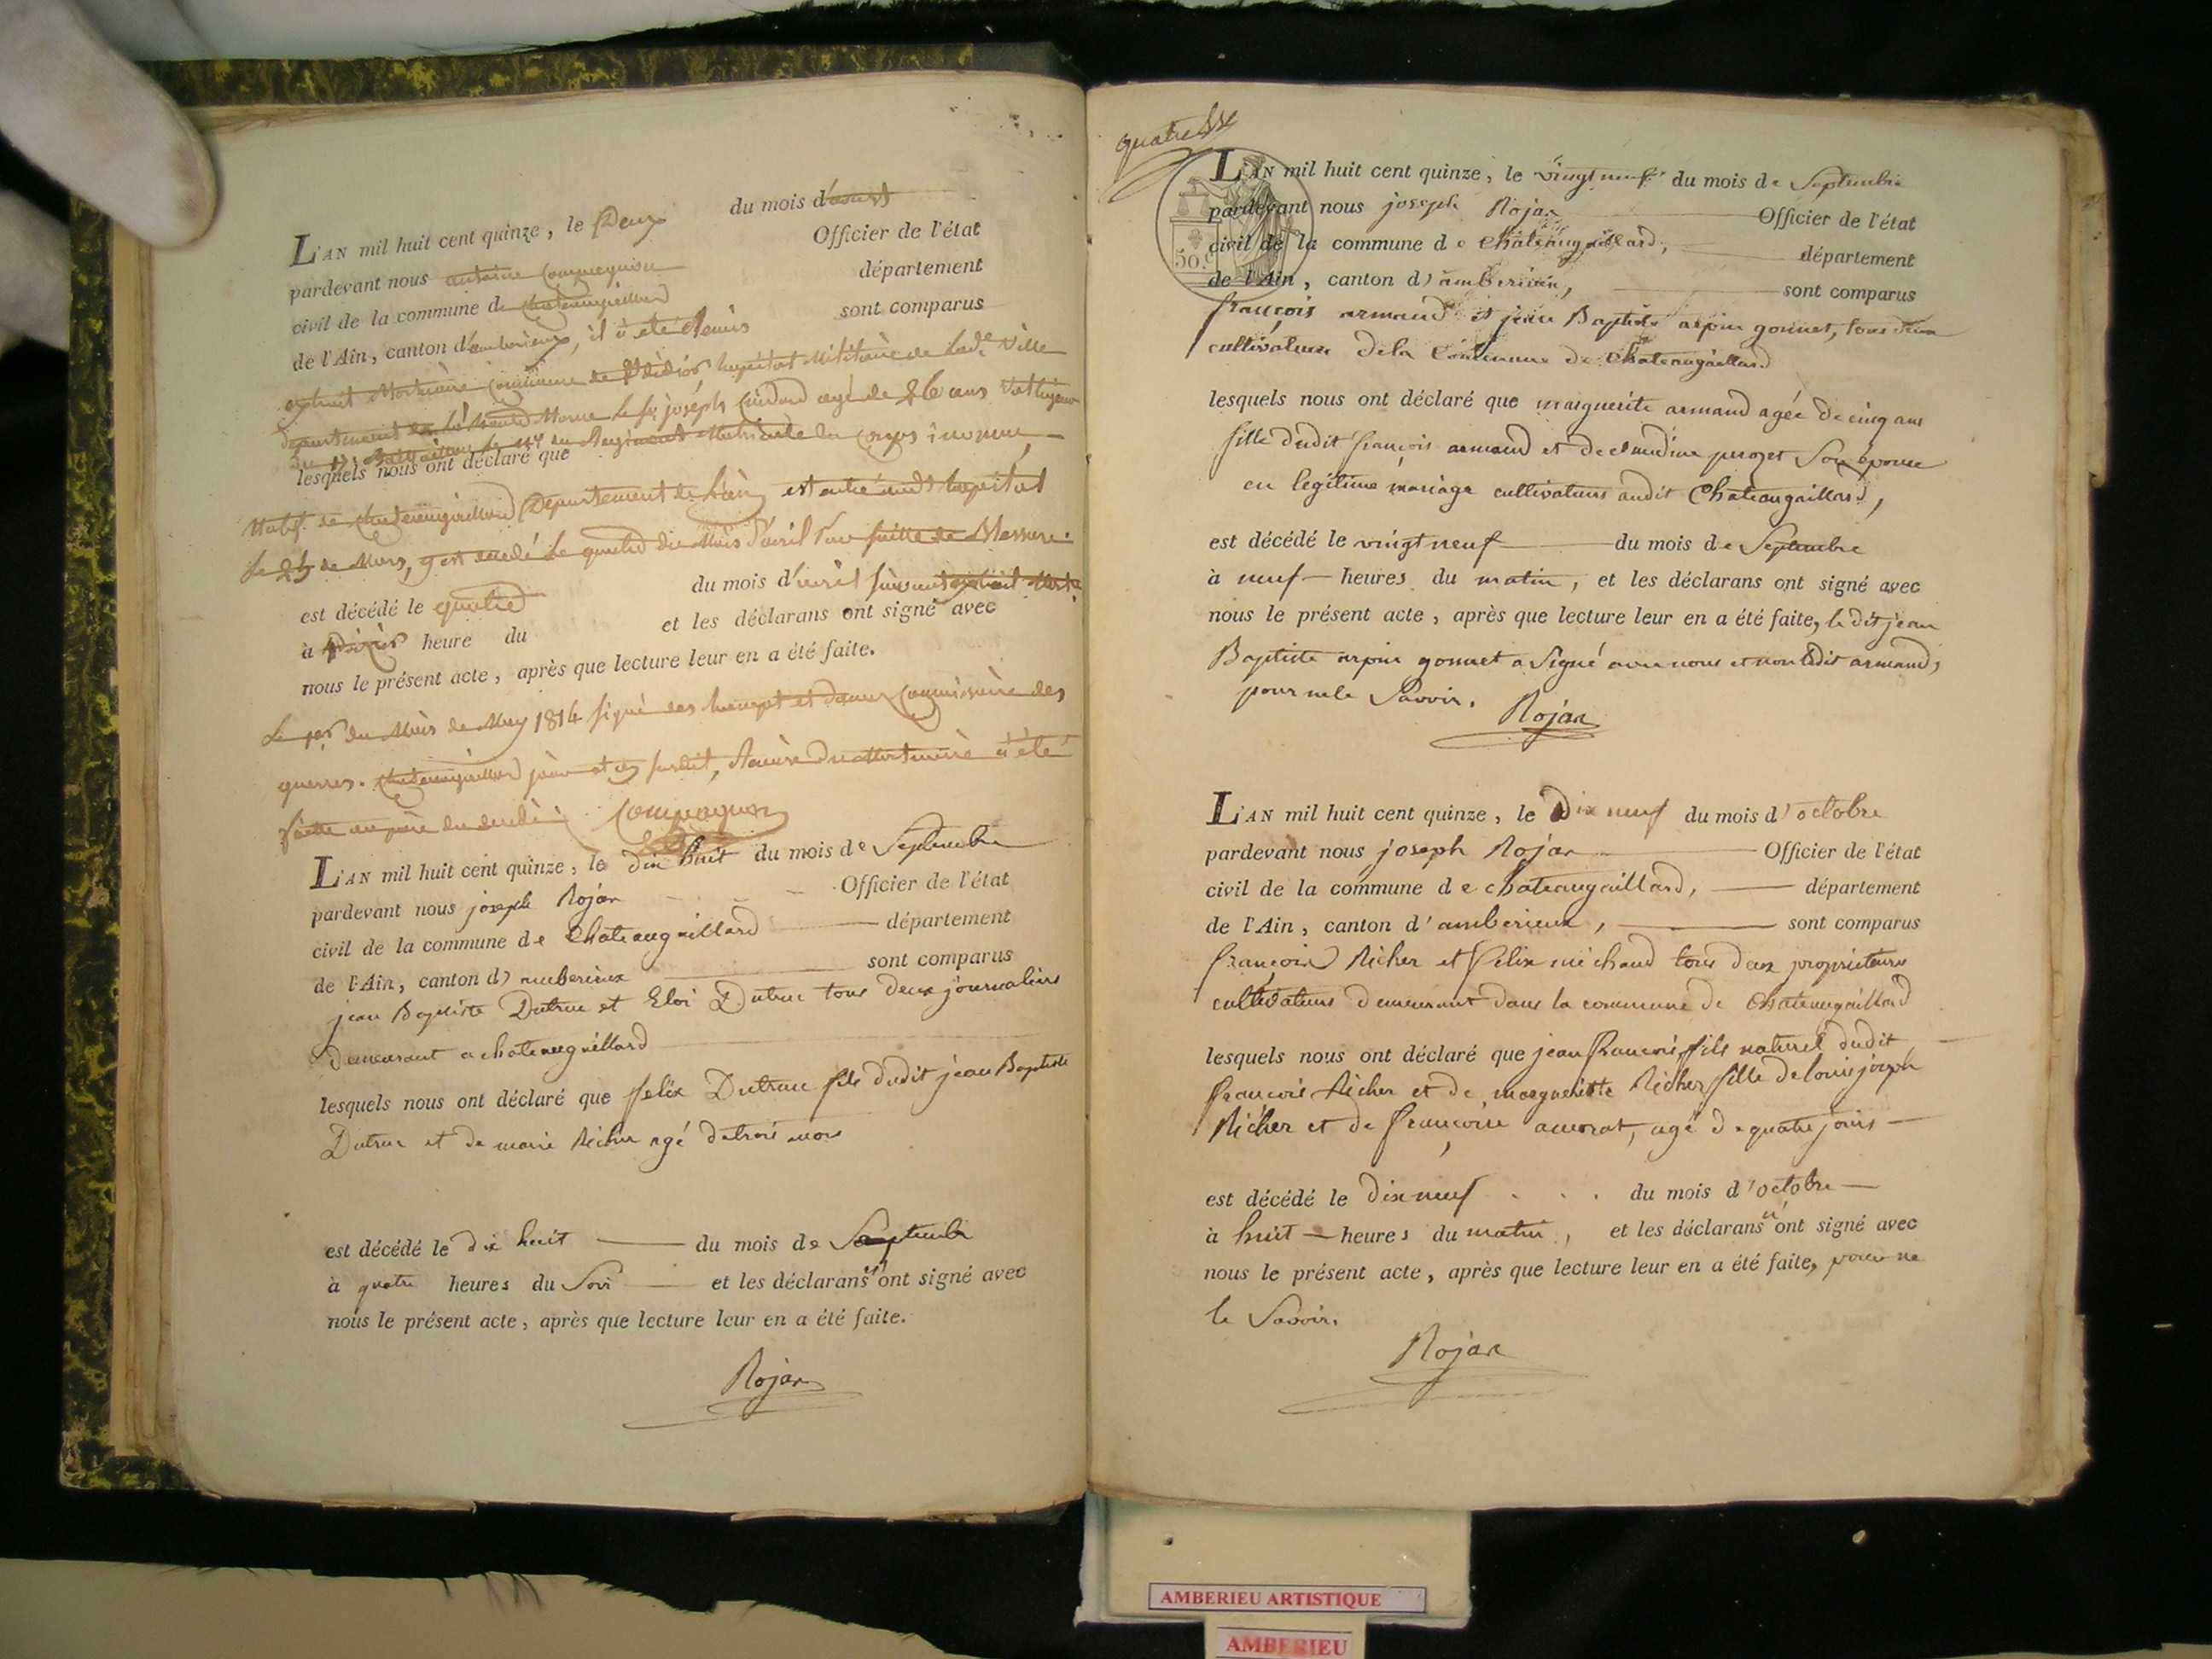 L'AN mil huit cent quinze, le Deux du mois d'aout
pardevant nous antoine Compagnion Officier de l'état
civil de la commune de chateaugaillard département
de l'Ain, canton d'amberieux, il à eté Remis sont comparus
extrait Mortuaire Commune de St didier, hopital Militaire de Lade. Ville
departement de hte Marne Le sr. joséph agé de 26 ans
lesquels nous ont déclaré que
Natif de chateaugaillard Département de L'ain, est entré audt. hopital
Le 25 de Mars, y est decedé Le quatre du Mois D'avril Par suitte de Blessure.
est décédé le quatre du mois d'avril suivant extrait Mort.
à heure du et les déclarans ont signé avec
nous le présent acte, après que lecture leur en a été faite.
Le 1er du Mois de May 1814 signé des et Commissaire des
guerres. Chateaugaillard jour et an susdit, Mortuaire à été
faitte au père du décédé Compagnion
L'AN mil huit cent quinze, le dix huit du mois de Septembre
pardevant nous joseph Rojar Officier de l'état
civil de la commune de Chateaugaillard département
de l'Ain, canton d'amberieux sont comparus
jean Baptiste Dutruc et Eloi Dutruc tous deux journaliers
demeurant a chateaugaillard
lesquels nous ont déclaré que felix Dutruc fils dudit jean Baptiste
Dutruc et de marie Richer agé de trois mois
est décédé le dix huit du mois de Septembre
à quatre heures du Soir et les déclarans n'ont signé avec
nous le présent acte, après que lecture leur en a été faite.
Rojar
quatre
50.c
L'AN mil huit cent quinze, le vingt neuf du mois de Septembre
pardevant nous joseph Rojar Officier de l'état
civil de la commune de Chateaugaillard, département
de l'Ain, canton d'amberieux, sont comparus
françois armand et jean Baptiste arpin gonnet, tous deux
cultivateurs de la Commune de Chateaugaillard
lesquels nous ont déclaré que marguerite armand agée de cinq ans
fille dudit françois armand et de claudine perozet Son épouse
en légitime mariage cultivateurs audit Chateaugaillard,
est décédé le vingt neuf du mois de Septembre
à neuf heures du matin, et les déclarans ont signé avec
nous le présent acte, après que lecture leur en a été faite, le dit jean
Baptiste arpin gonnet a Signé avec nous et non ledit armand,
pour ne le Savoir.
Rojar
L'AN mil huit cent quinze, le Dix neuf du mois d'octobre
pardevant nous joseph Rojar Officier de l'état
civil de la commune de chateaugaillard, département
de l'Ain, canton d'amberieux, sont comparus
françois Richer et felix michaud tous deux propriétaires
cultivateurs demeurant dans la commune de Chateaugaillard
lesquels nous ont déclaré que jean françois fils naturel dudit
françois Richer et de margueritte Richer fille de louis joseph
Richer et de françoise, agé de quatre jours
est décédé le dix neuf du mois d'octobre
à huit heures du matin, et les déclarans n'ont signé avec
nous le présent acte, après que lecture leur en a été faite, pour ne
le Savoir.
Rojar
AMBERIEU ARTISTIQUE
AMBERIEU